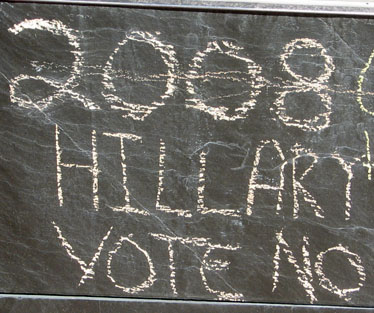 2008
HILLARY
VOTE NO